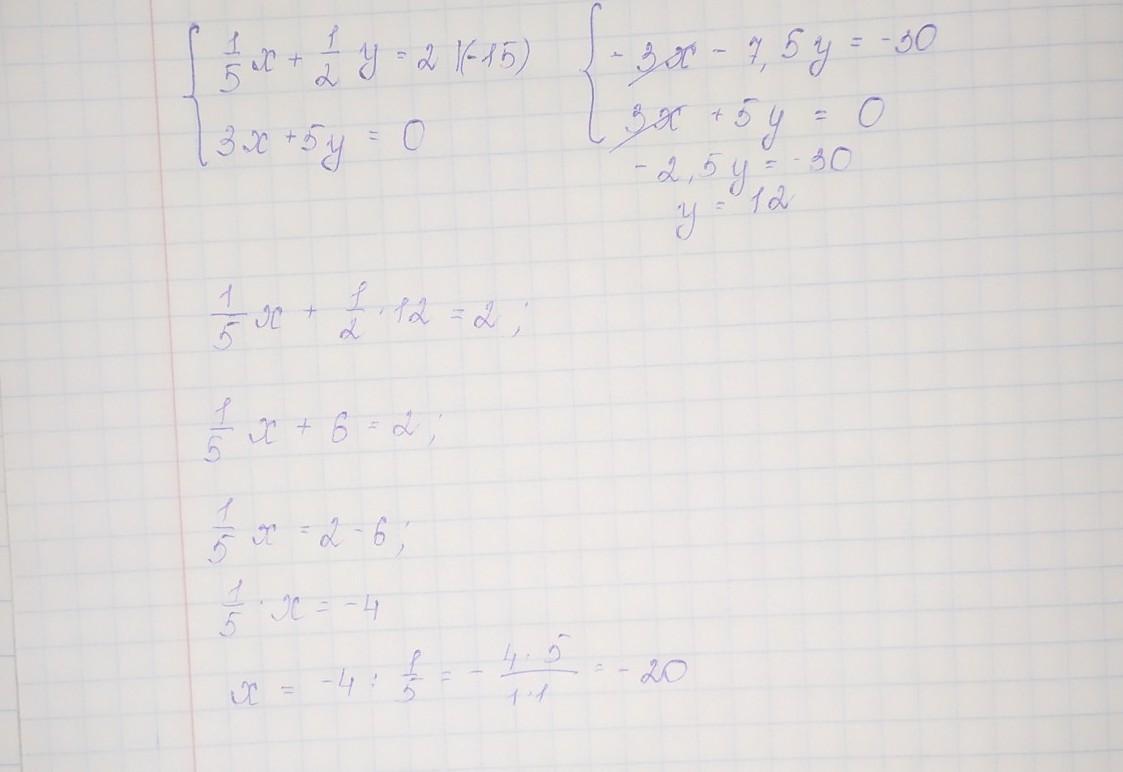 1/5 x + 1/2 y = 2 |(-15)
3x + 5y = 0
- 3x - 7,5y = -30
3x + 5y = 0
- 2,5y = -30
y = 12
1/5 x + 1/2 · 12 = 2 ;
1/5 x + 6 = 2 ;
1/5 x = 2 - 6 ;
1/5 · x = -4
x = -4 : 1/5 = - 4·5/1·1 = -20